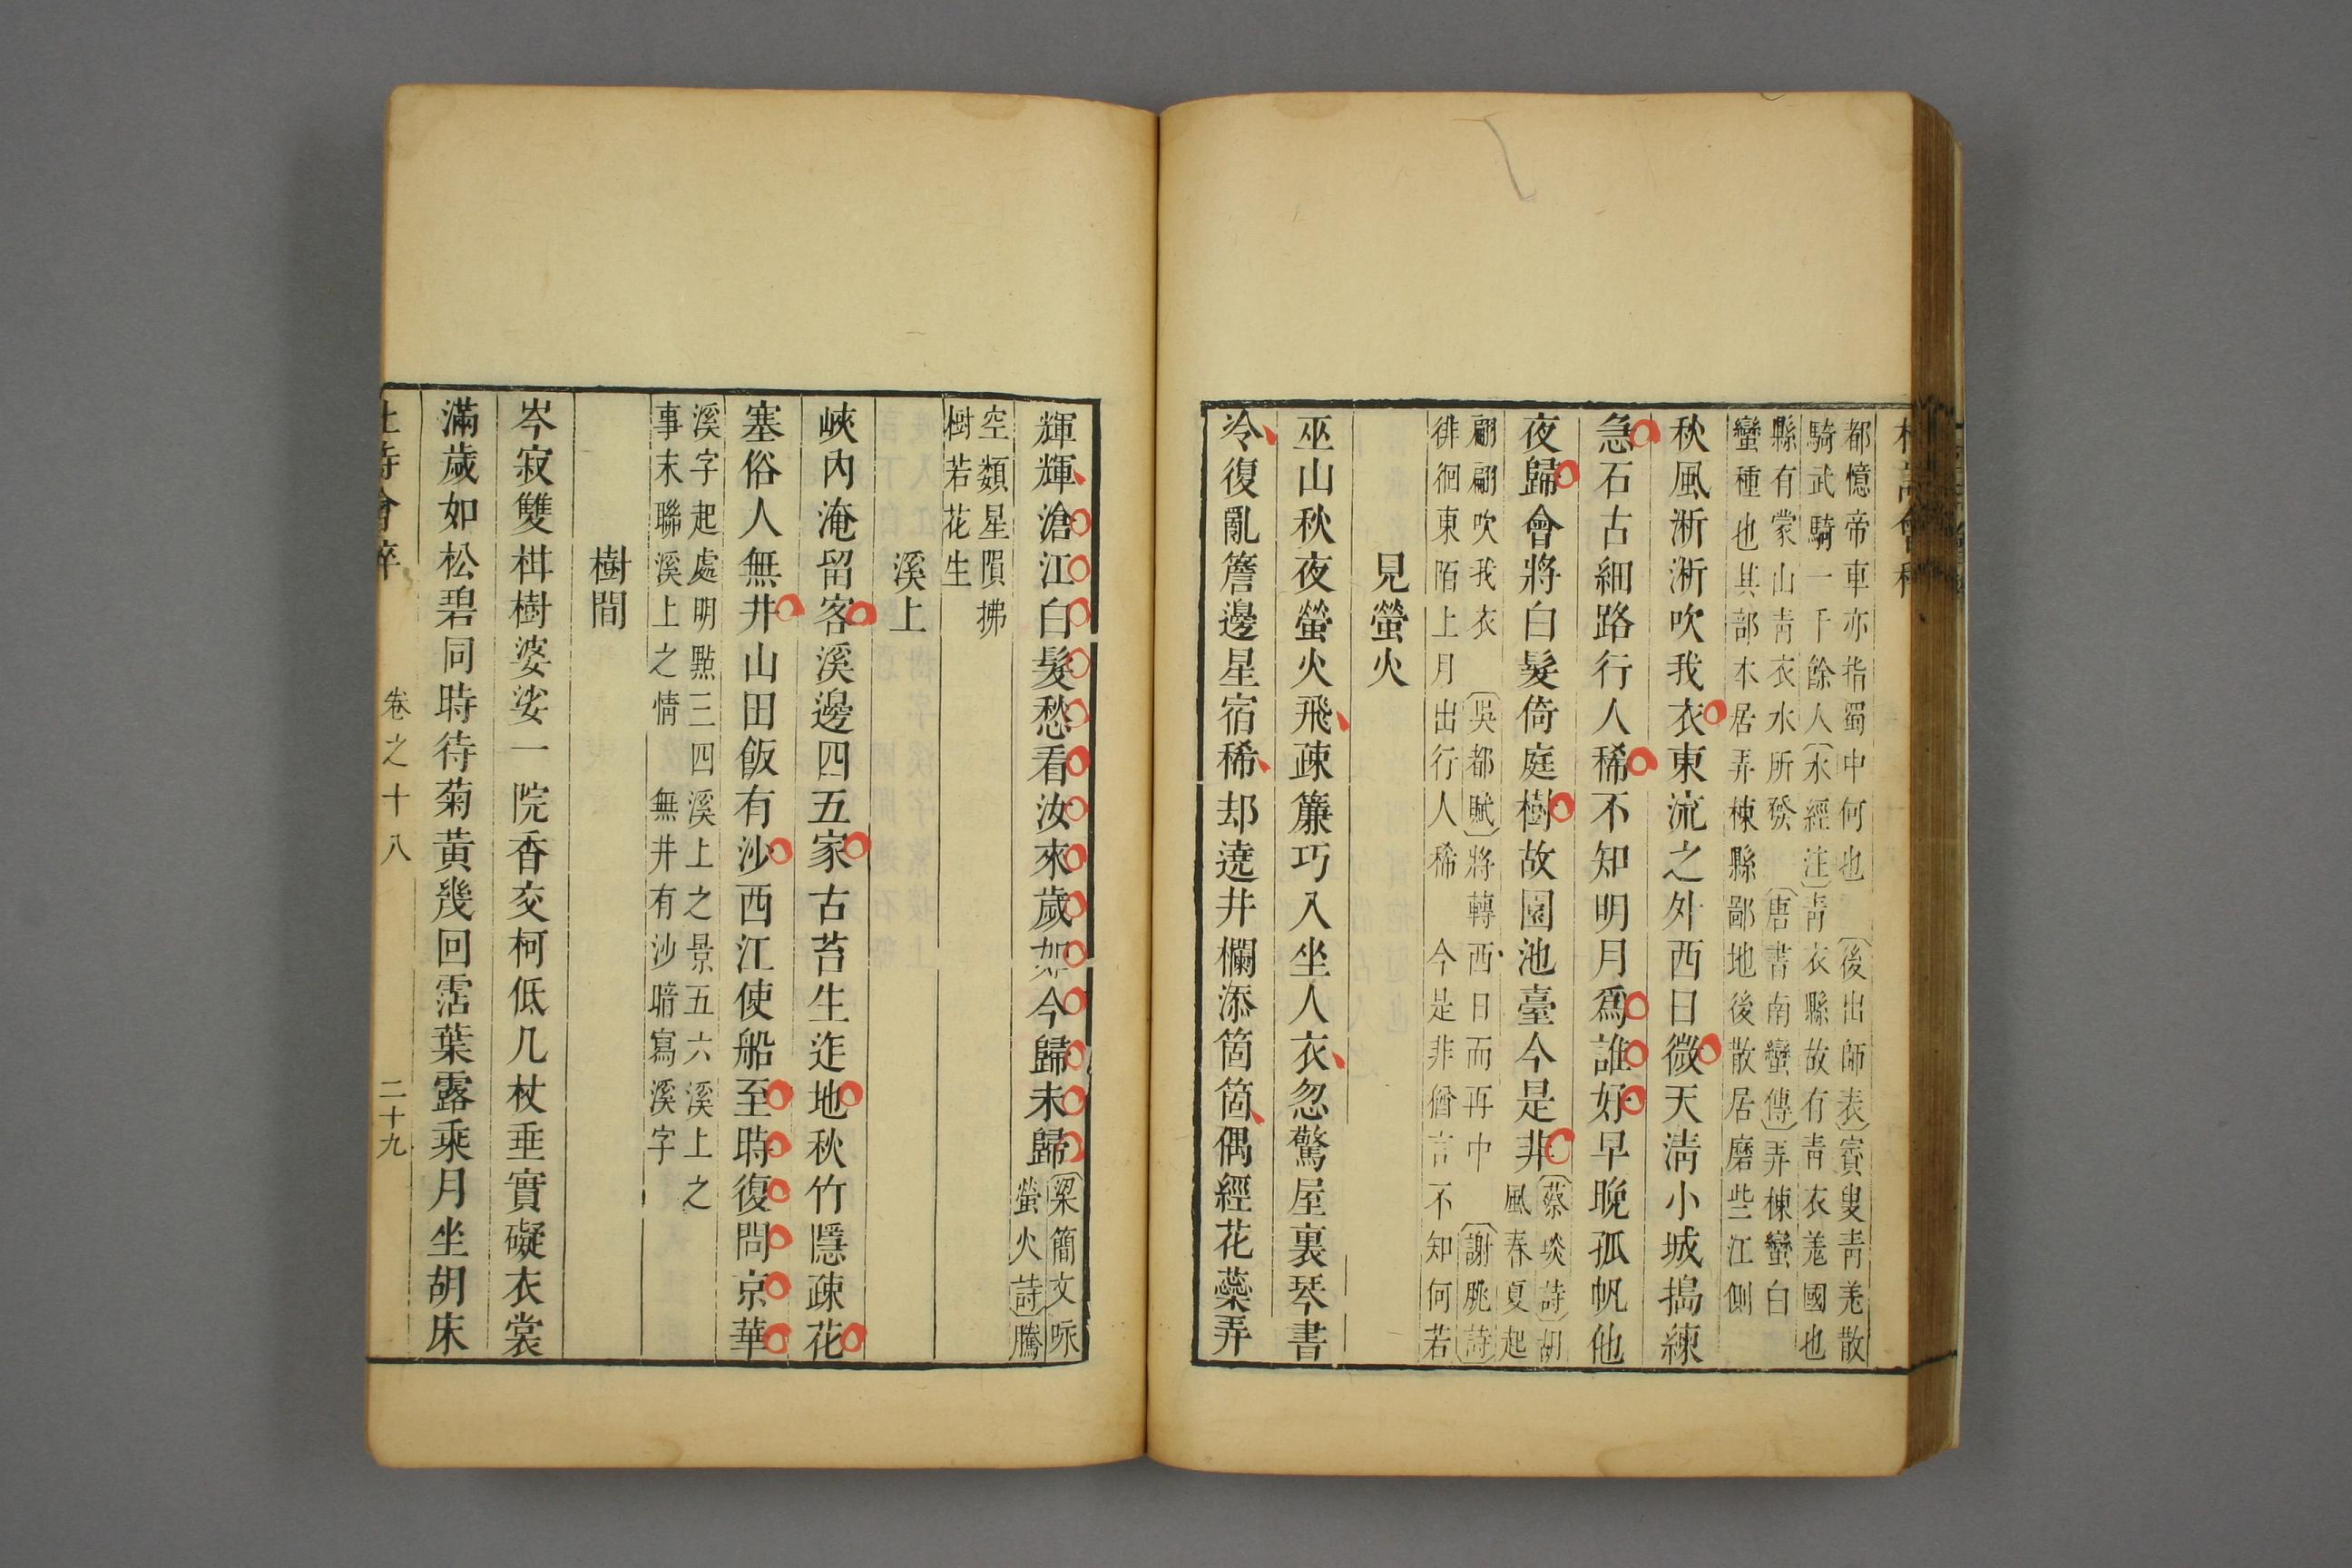 都憶帝車亦指蜀中何也 〔後出師表〕賨叟靑羗散
騎武騎一千餘人〔水經注〕靑衣縣故有靑衣羗國也
縣有蒙山靑衣水所發 〔唐書南蠻傳〕弄棟蠻白
蠻種也其部本居弄棟縣鄙地後散居磨些江側
秋風淅淅吹我衣東流之外西日微天淸小城搗練
急石古細路行人稀不知明月爲誰好早晚孤帆他
夜歸會將白髮倚庭樹故園池臺今是非
〔蔡琰詩〕胡
風春夏起
翩翩吹我衣 〔吳都賦〕將轉西日而再中 〔謝朓詩〕
徘徊東陌上月出行人稀 今是非猶言不知何若
見螢火
巫山秋夜螢火飛疎簾巧入坐人衣忽驚屋裏琴書
冷復亂簷邊星宿稀却遶井欄添箇箇偶經花蘂弄
輝輝滄江白髮愁看汝來歲如今歸未歸
〔梁簡文咏
螢火詩〕騰
空類星隕拂
樹若花生
溪上
峽內淹留客溪邊四五家古苔生迮地秋竹隱疎花
塞俗人無井山田飯有沙西江使船至時復問京華
溪字起處明點三四溪上之景五六溪上之
事末聯溪上之情 無井有沙暗寫溪字
樹間
岑寂雙柑樹婆娑一院香交柯低几杖垂實礙衣裳
滿歲如松碧同時待菊黃幾回霑葉露乘月坐胡床
卷之十八 二十九